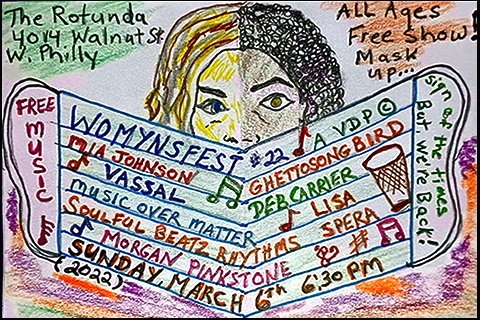 The Rotunda
4014 Walnut St.
W. Philly
All Ages
Free Show!
Mask
Up...
FREE
MUSIC
Sign of the times
But we're Back!
WOMYNSFEST #22
MIA JOHNSON
VASSAL
MUSIC OVER MATTER
SOULFUL BEATZ RHYTHMS
MORGAN PINKSTONE
SUNDAY, MARCH 6TH 6:30PM
(2022)
A VDP ©
GHETTOSONGBIRD
DEB CARRIER
LISA
SPERA